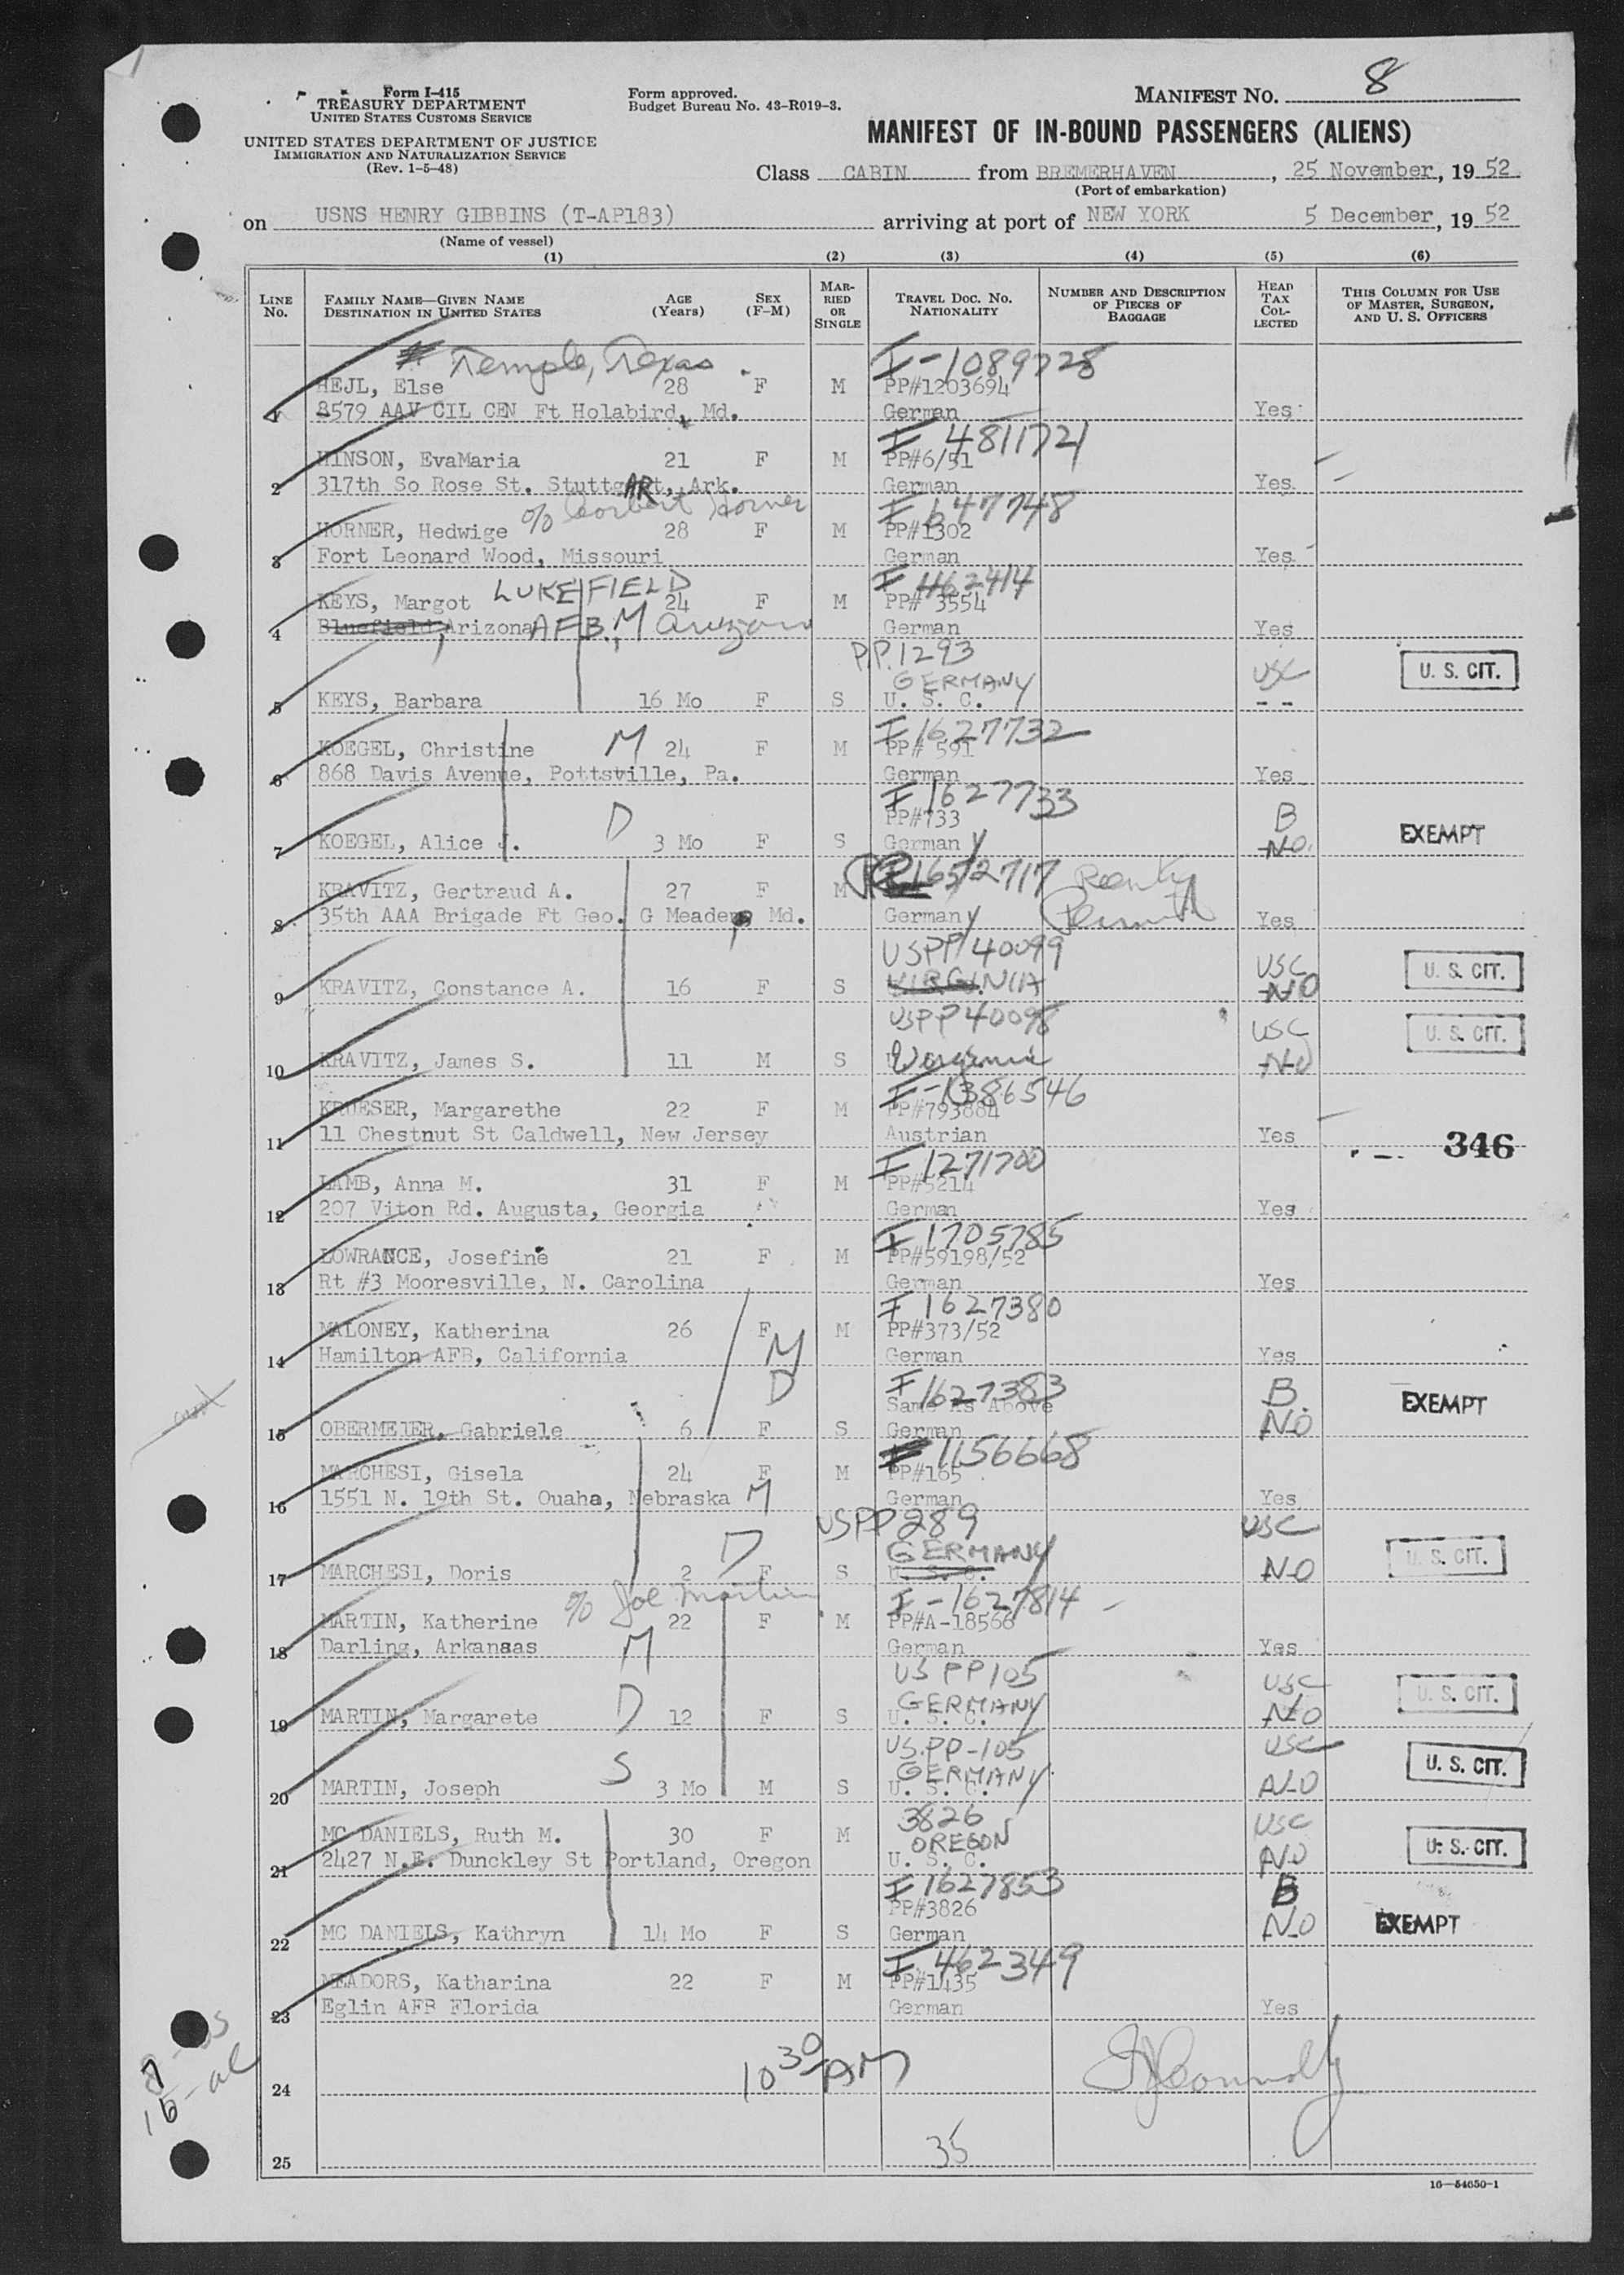 Form I-415
TREASURY DEPARTMENT
UNITED STATES CUSTOMS SERVICE
UNITED STATES DEPARTMENT OF JUSTICE
IMMIGRATION AND NATURALIZATION SERVICE
(Rev. 1-5-48)
Form approved.
Budget Bureau No. 43-R019-3.
MANIFEST NO. 8
MANIFEST OF IN-BOUND PASSENGERS (ALIENS)
Class CABIN from BREMERHAVEN, 25 November, 19 52
(Port of embarkation)
on USNS HENRY GIBBINS (T-AP183) arriving at port of NEW YORK 5 December, 19 52
(Name of vessel)
(1) (2) (3) (4) (5) (6)
LINE No. FAMILY NAME—GIVEN NAME DESTINATION IN UNITED STATES AGE (Years) SEX (F-M) MARRIED OR SINGLE TRAVEL DOC. NO. NATIONALITY NUMBER AND DESCRIPTION OF PIECES OF BAGGAGE HEAD TAX COLLECTED THIS COLUMN FOR USE OF MASTER, SURGEON, AND U. S. OFFICERS
Temple, Texas I-1089728
HEJL, Else 28 F M PP#1203694
1 8579 AAV CIL CEN Ft Holabird, Md. German Yes
I 4811721
HINSON, EvaMaria 21 F M PP#6/51
2 317th So Rose St. StuttgARt, Ark. German Yes
% Horner I 647748
HORNER, Hedwige 28 F M PP#1302
3 Fort Leonard Wood, Missouri German Yes
LUKE FIELD I 462414
KEYS, Margot 24 F M PP# 3554
4 Bluefield, Arizona AFB, M Arizona German Yes
P.P. 1293
GERMANY USC U. S. CIT.
5 KEYS, Barbara 16 Mo F S U. S. C. - -
I 1627732
KOEGEL, Christine M 24 F M PP# 591
6 868 Davis Avenue, Pottstville, Pa. German Yes
I 1627733
D PP#733 B EXEMPT
7 KOEGEL, Alice J. 3 Mo F S Germany NO.
1652717 Reentry
KRAVITZ, Gertraud A. 27 F M Permit
8 35th AAA Brigade Ft Geo. G Meade, Md. Germany Yes
USPP 40099 USC U. S. CIT.
9 KRAVITZ, Constance A. 16 F S VIRGINIA NO
USPP 40098 USC U. S. CIT.
10 KRAVITZ, James S. 11 M S Virginia NO
I-1386546
KRUESER, Margarethe 22 F M PP#793884
11 11 Chestnut St Caldwell, New Jersey Austrian Yes 346
I 1271700
LAMB, Anna M. 31 F M PP#5214
12 207 Viton Rd. Augusta, Georgia German Yes
I 1705785
LOWRANCE, Josefine 21 F M PP#59198/52
13 Rt #3 Mooresville, N. Carolina German Yes
I 1627380
MALONEY, Katherina 26 F M PP#373/52
14 Hamilton AFB, California M German Yes
D I 1627383 B.
Same As Above EXEMPT
15 OBERMEIER, Gabriele 6 F S German NO
I 1156668
MARCHESI, Gisela 24 F M PP#165
16 1551 N. 19th St. Ouaha, Nebraska M German Yes
USPP 289 USC
D GERMANY U. S. CIT.
17 MARCHESI, Doris 2 F S U. S. C. NO
% Joe Martin I-1627814
MARTIN, Katherine 22 F M PP#A-18566
18 Darling, Arkansas M German Yes
US PP 105 USC U. S. CIT.
GERMANY
19 MARTIN, Margarete D 12 F S U. S. C. NO
US.PP-105 USC
S GERMANY U. S. CIT.
20 MARTIN, Joseph 3 Mo M S U. S. C. NO
3826 USC
MC DANIELS, Ruth M. 30 F M OREGON U. S. CIT.
21 2427 N.E. Dunckley St Portland, Oregon U. S. C. NO
I 1627853 B
PP#3826
22 MC DANIELS, Kathryn 14 Mo F S German NO EXEMPT
I 462349
MEADORS, Katharina 22 F M PP#1435
23 Eglin AFB Florida German Yes
10 30 AM
24
35
25
16—54650-1